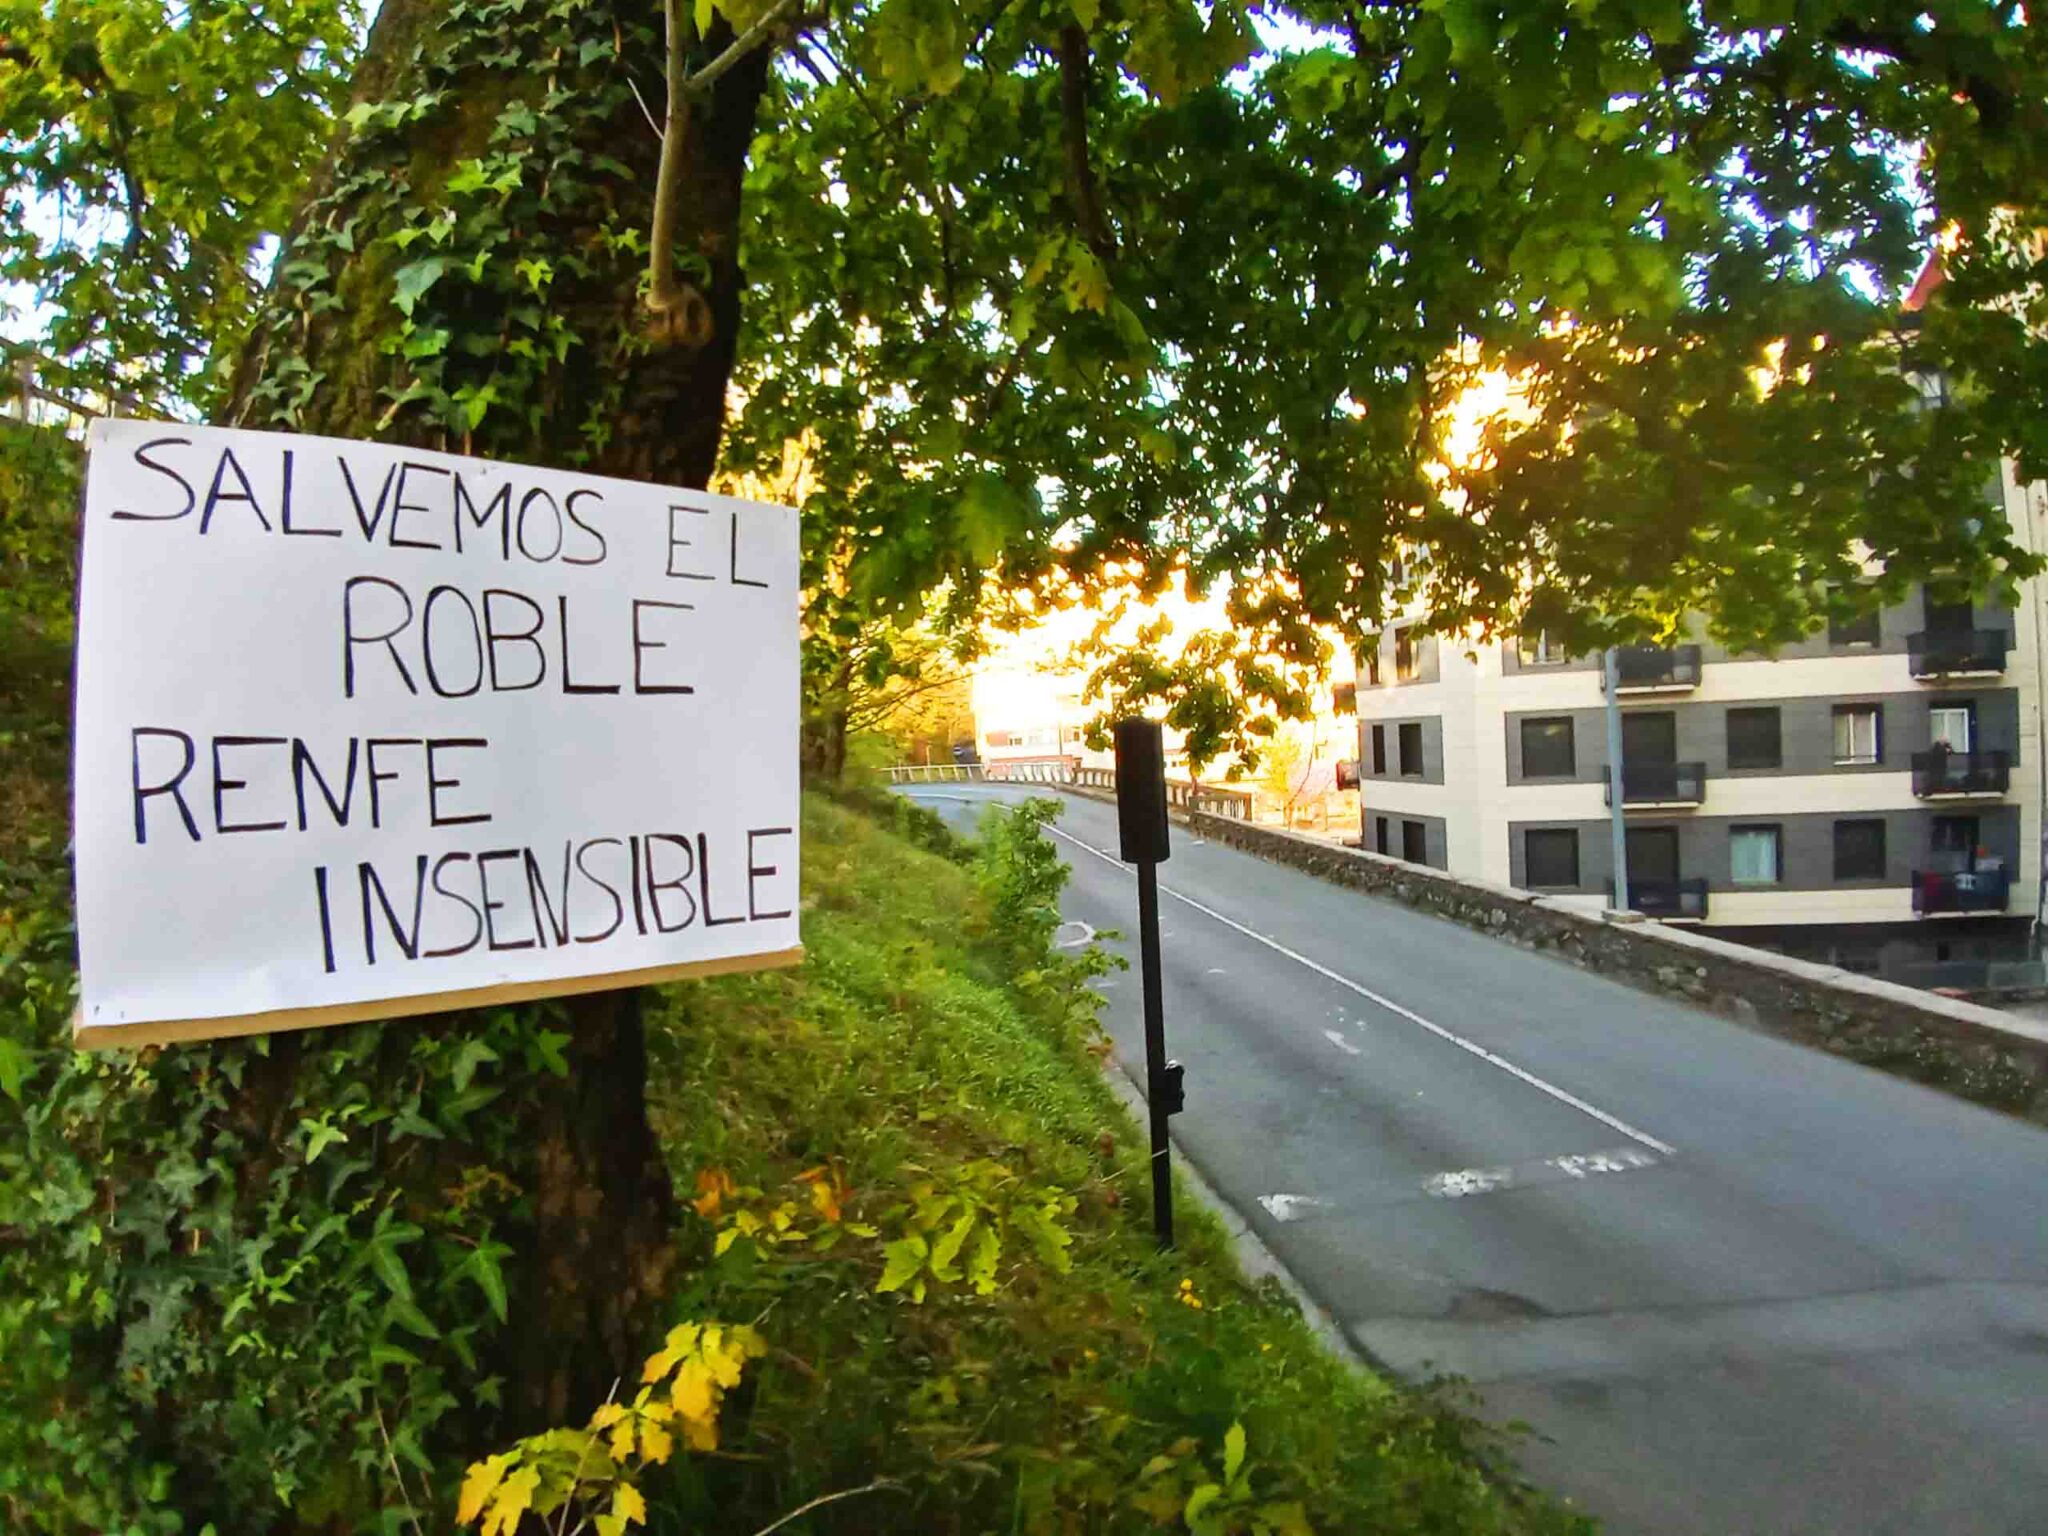 SALVEMOS EL
ROBLE
RENFE
INSENSIBLE